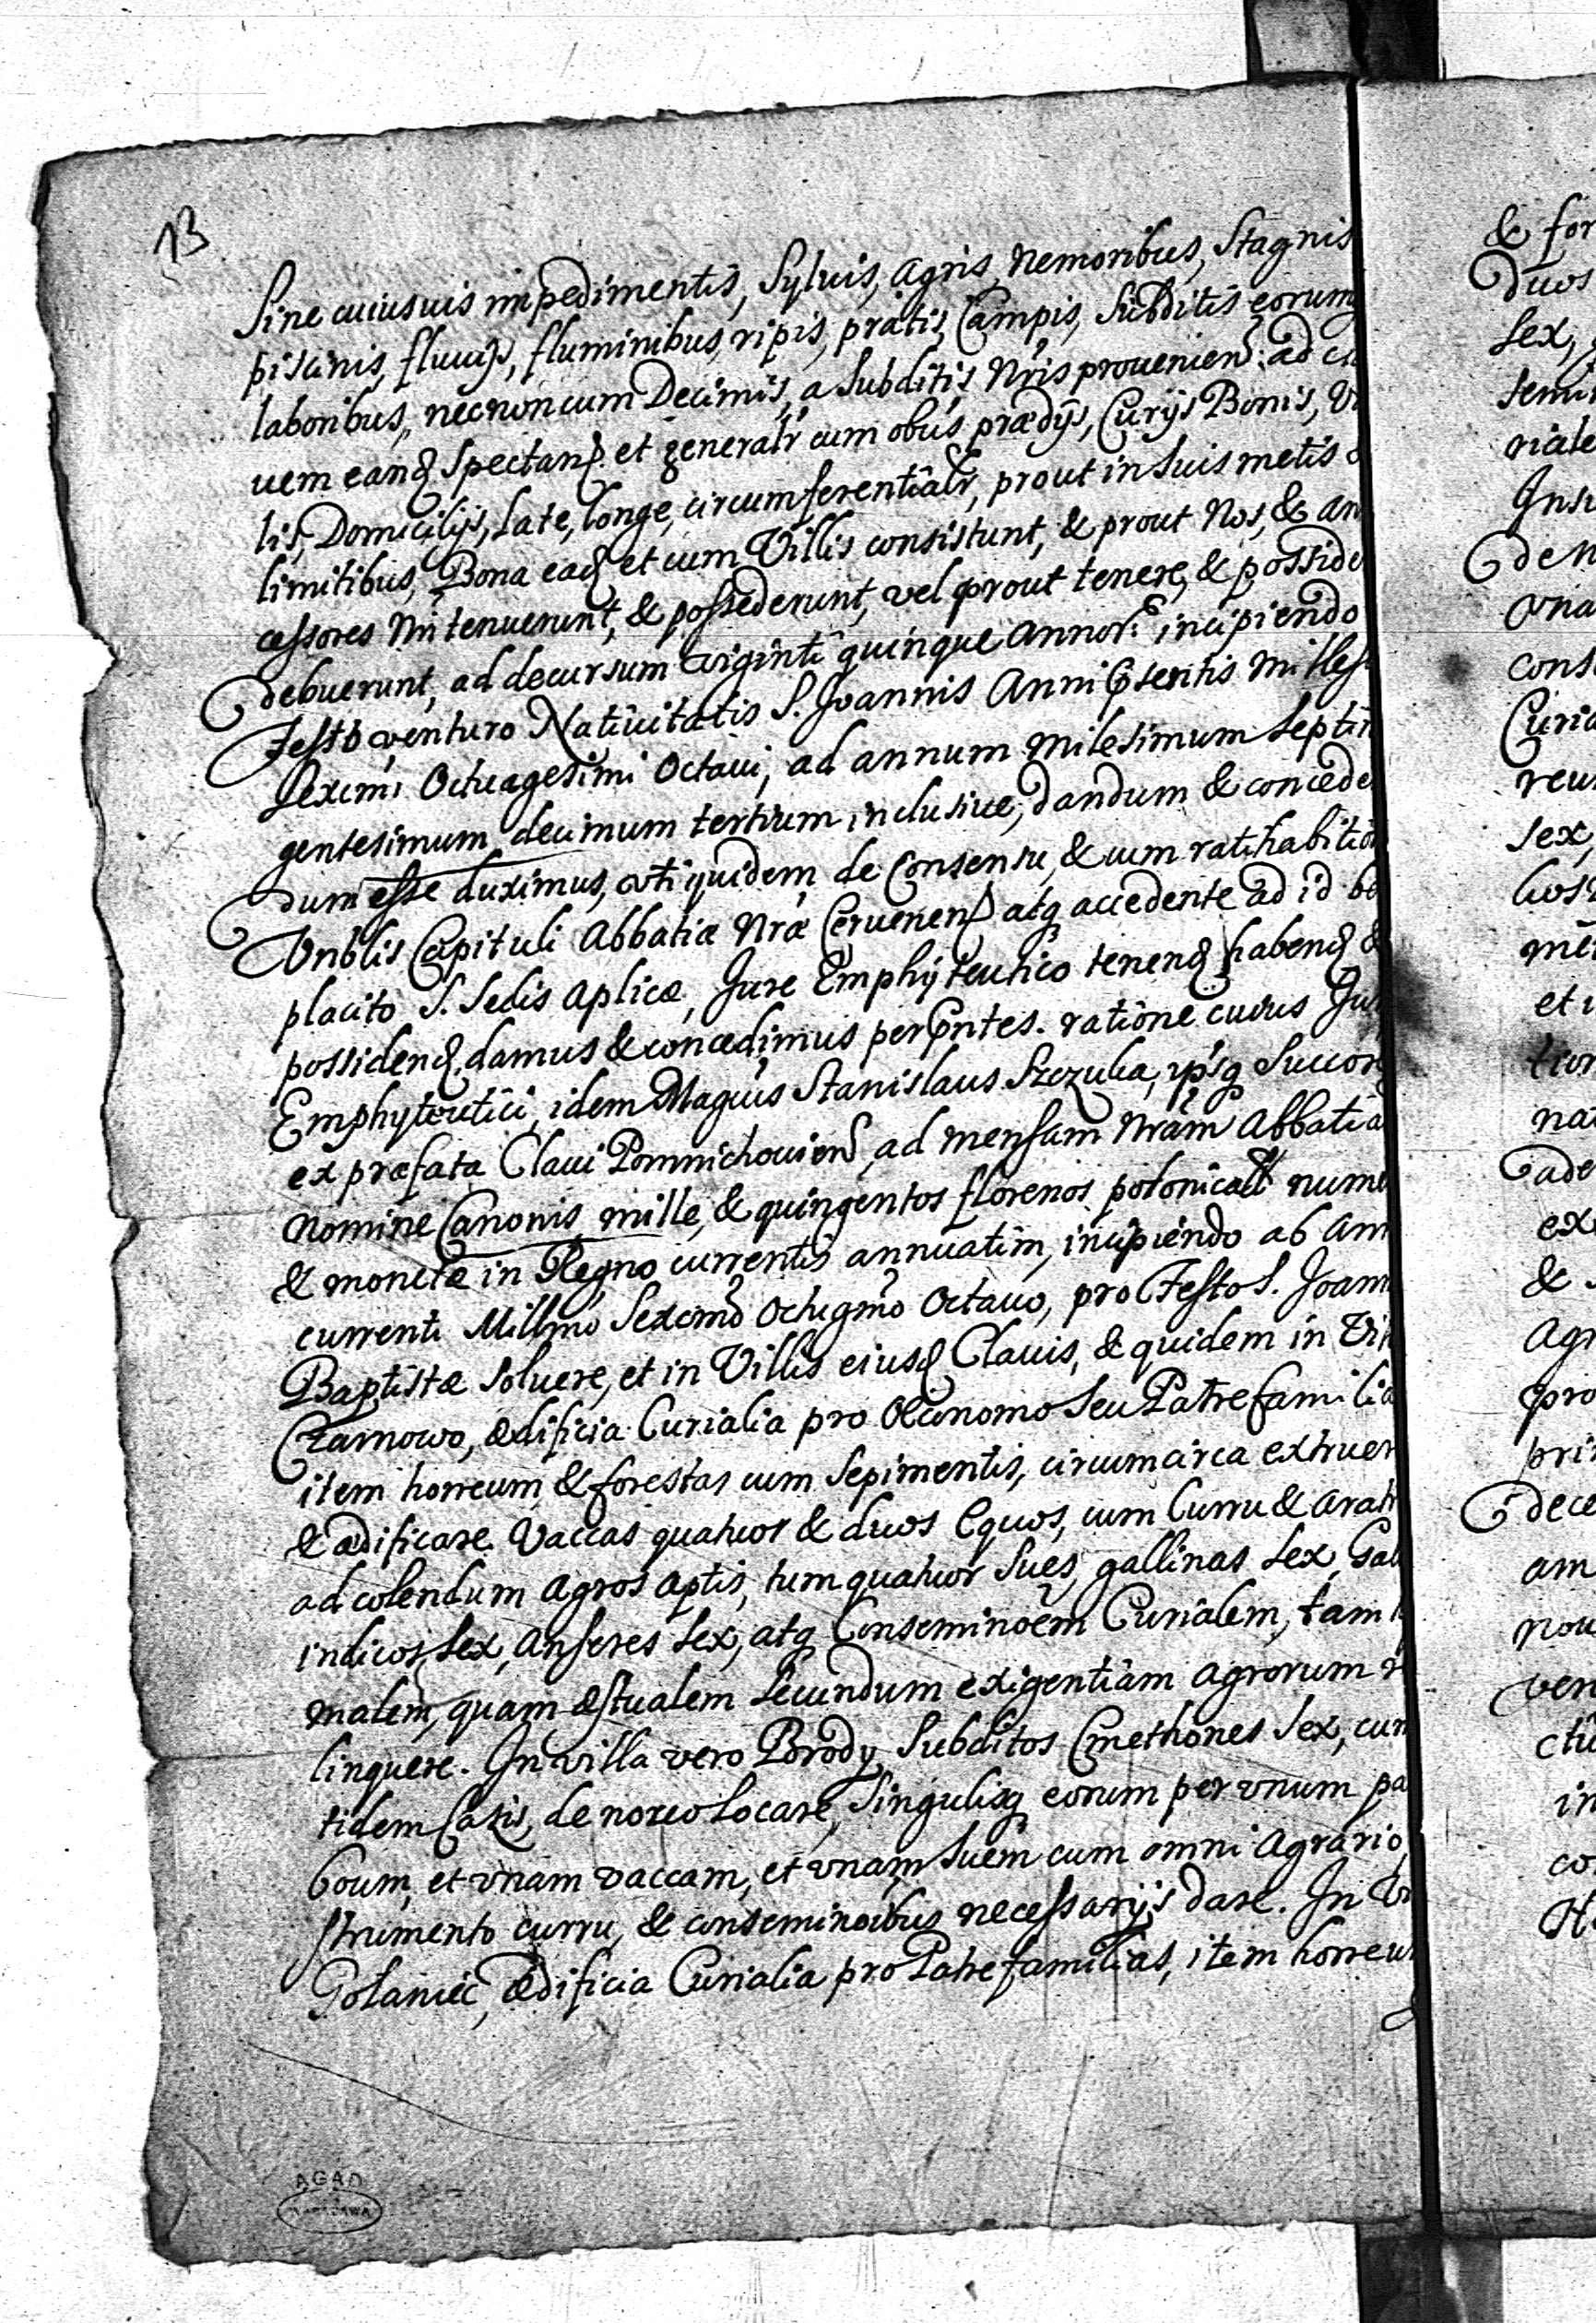 13
Sine cuiusuis impedimentis, Syluis, Agris, Nemoribus, Stagnis
piscinis, fluuijs, fluminibus, ripis, pratis, Campis, Subditis eorumq
laboribus, necnon cum Decimis, a Subditis Nris prouenien: ad
uem eanq Spectan. et generalr cum obus prædijs, Curijs Bonis,
lis, Domicilijs, Late, longe, circumferentialr, prout in Suis metis &
limitibus, Bona eaq et cum Villis consistunt, & prout Nos, & an
cessores Nri tenuerunt, & possederunt, vel prout tenere, & posside
debuerunt, ad decursum viginti quinque Annor. incipiendo
Festo venturo Natiuitatis S. Joannis Anni Pntis Milles
Sexcmi Octuagesimi Octaui, ad annum milesimum Septin
gentesimum decimum tertium inclusiue, dandum & concede
dum esse duximus, vti quidem de Consensu, & cum ratihabitio
Vnblis Capituli Abbatiæ Nræ Ceruenen atq accedente ad id be
placito S. Sedis Aplicæ, Jure Emphyteutico tenen habenq &
possidenq damus & concedimus per Pntes. ratione cuius Ju
Emphyteutici, idem Magcus Stanislaus Szczuka, ipsq Succor
ex præfata Claui Pomnichouien, ad mensam Nram Abbatia
Nomine Canonis mille, & quingentos florenos polonicales nume
& monetæ in Regno currentis annuatim, incipiendo ab Ann
currenti Millmo Sexcmo Octugmo Octauo, pro Festo S. Joann
Baptistæ Soluere, et in Villis eiusq Clauis, & quidem in Vi
Czarnowo, ædificia Curialia pro Oeconomo Seu Patrefamilia
item horreum & forestas cum Sepimentis, circumcirca extruer
& ædificare. Vaccas quatuor & duos Equos, cum Curru & Arat
ad colendum Agros aptis, tum quatuor Sues, gallinas Sex, Gal
indicos Sex, Anseres Sex, atq Conseminoem Curialem, tam
malem, quam æstualem Secundum exigentiam Agrorum
linquere. In villa vero Brody Subditos Cmethones Sex, cum
tidem Casis, de nouo Locare, Singulisq eorum per vnum pa
boum, et vnam vaccam, et vnam Suem cum omni Agrario,
strumento curru, & conseminoibus necessarijs dare. In
Golawic, ædificia Curialia pro Patrefamilias, item horreu
& for
duos
Sex,
semi
riale
Insu
vna
cons
Curia
reu
sex,
et i
nat
ade
ex
&
Agr
pro
pri
dece
am
nou
ven
ctu
in
co
AGAD
WARSZAWA